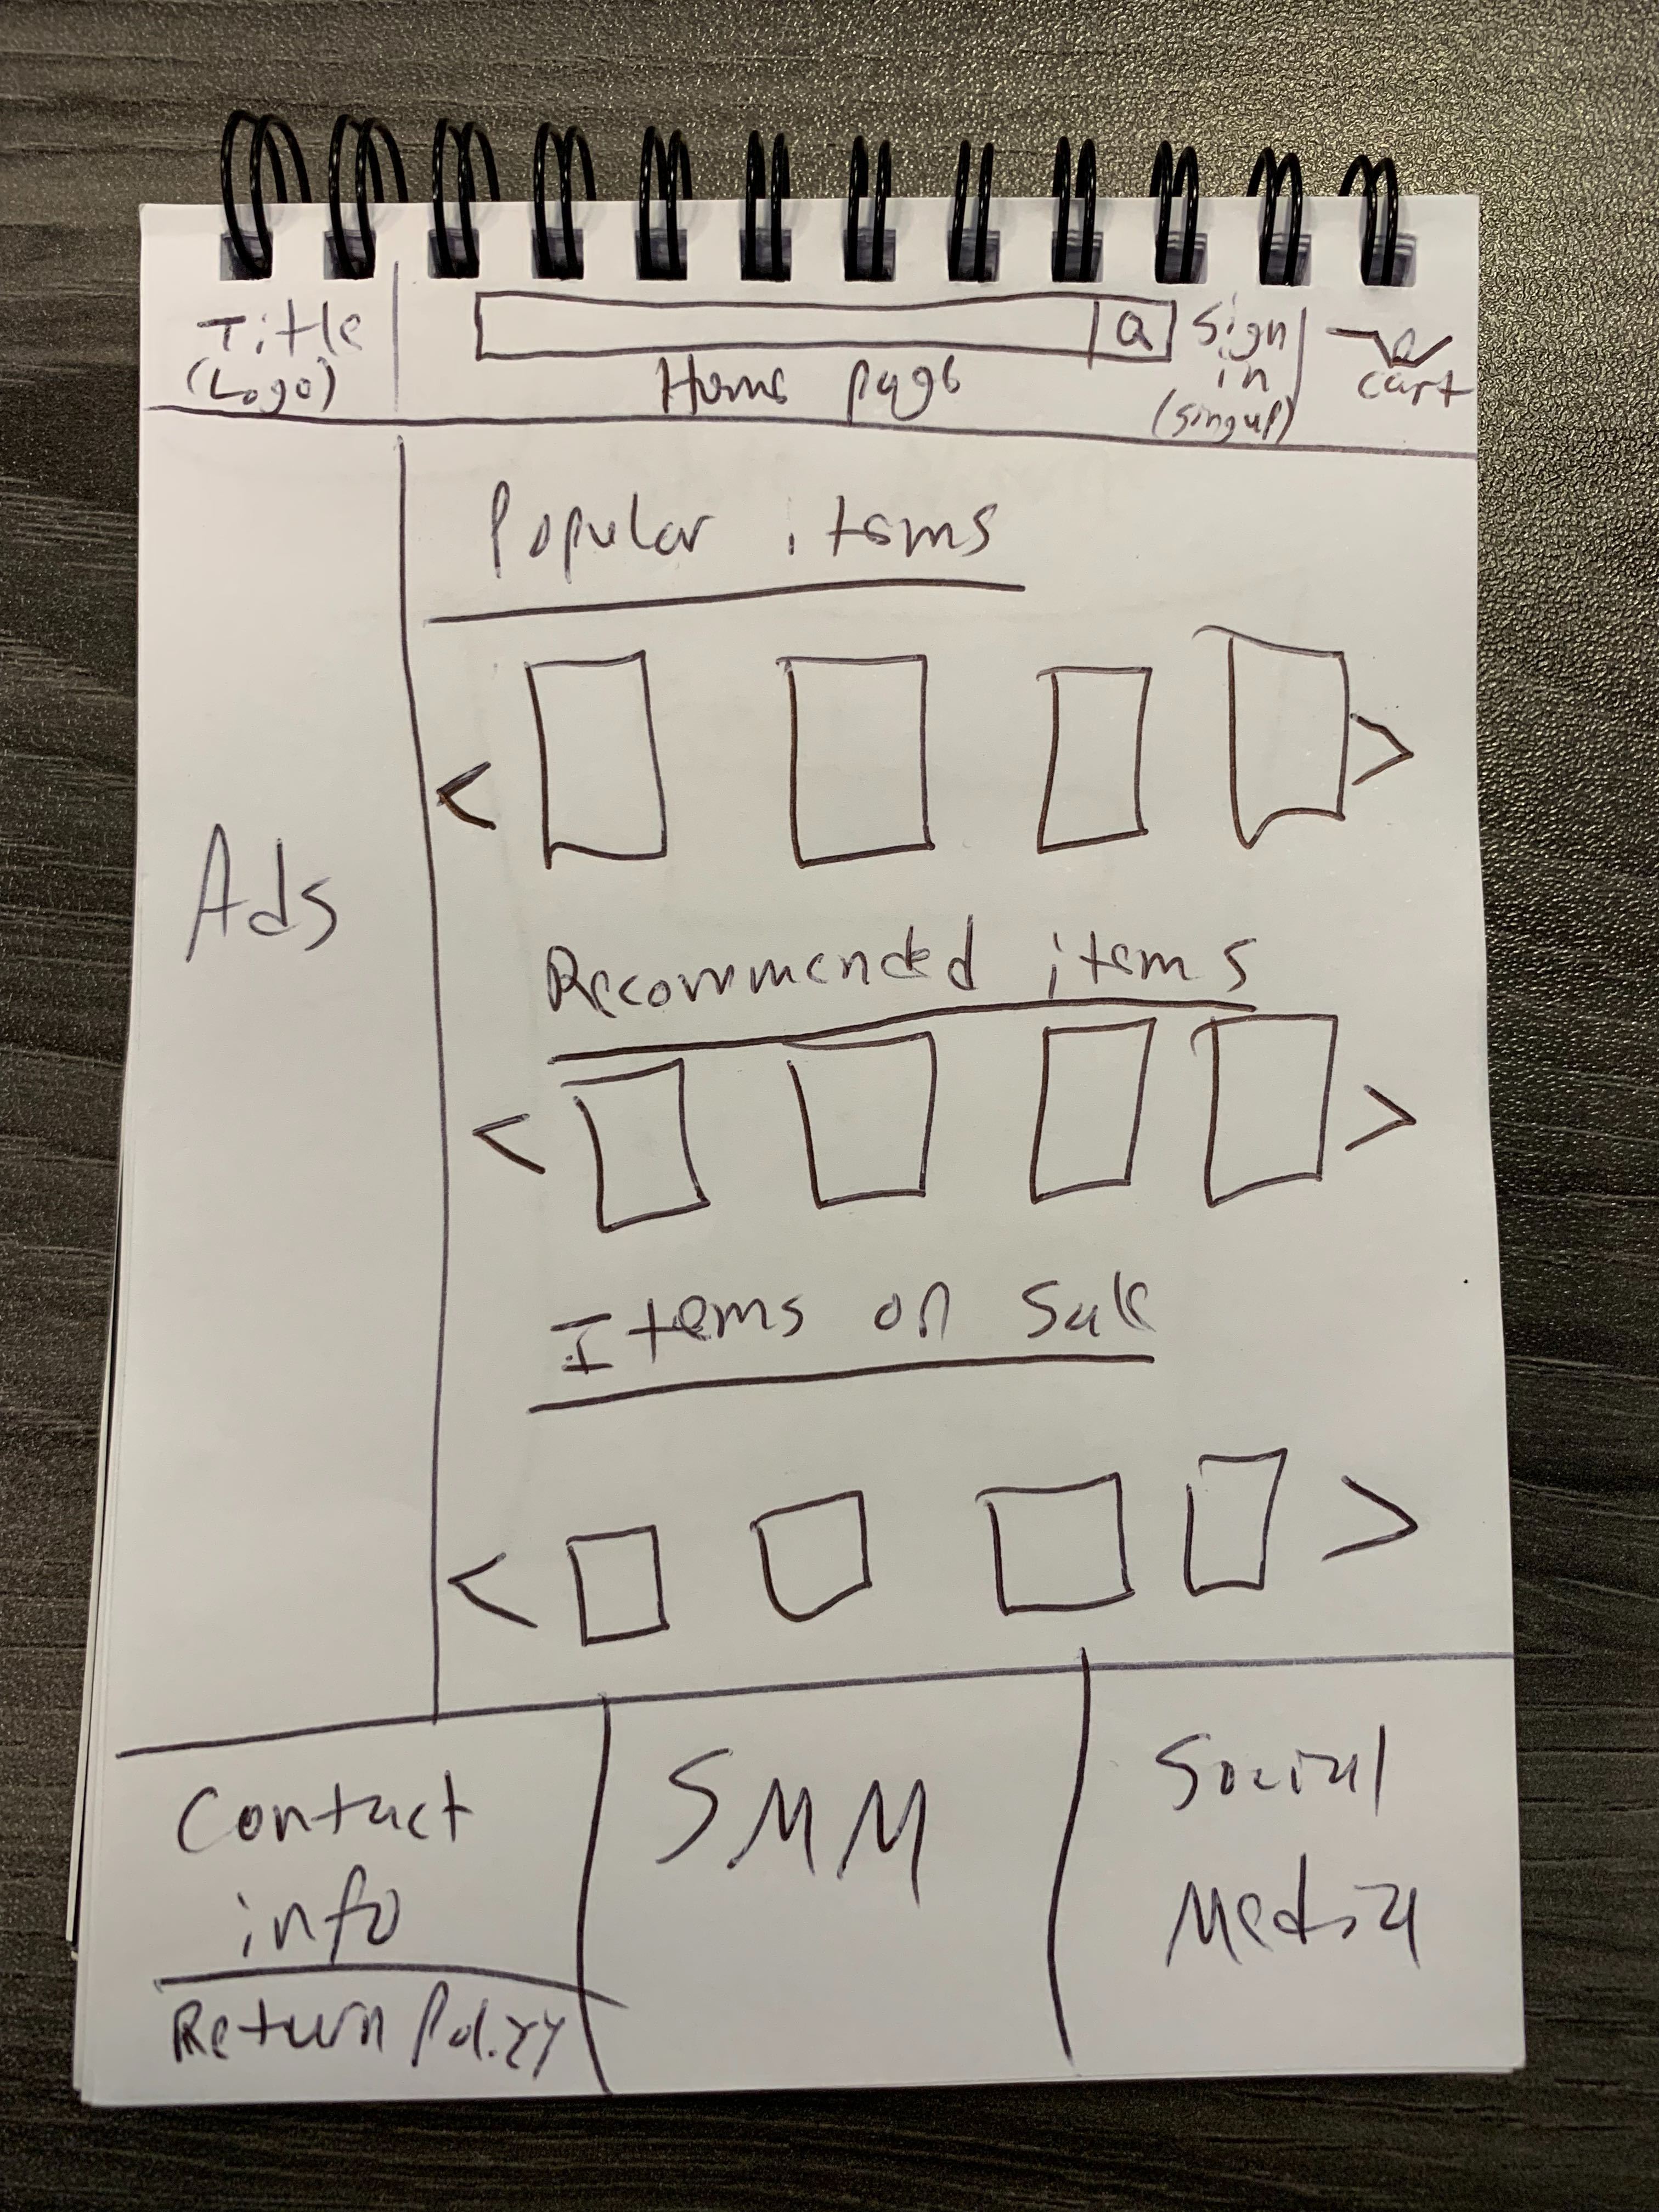 Title
(Logo)
Q
Home page
Sign
in
(singup)
cart
Popular items
<
>
Ads
Recommended items
<
>
Items on Sale
<
>
Contact
info
Return Policy
SMM
Social
Media